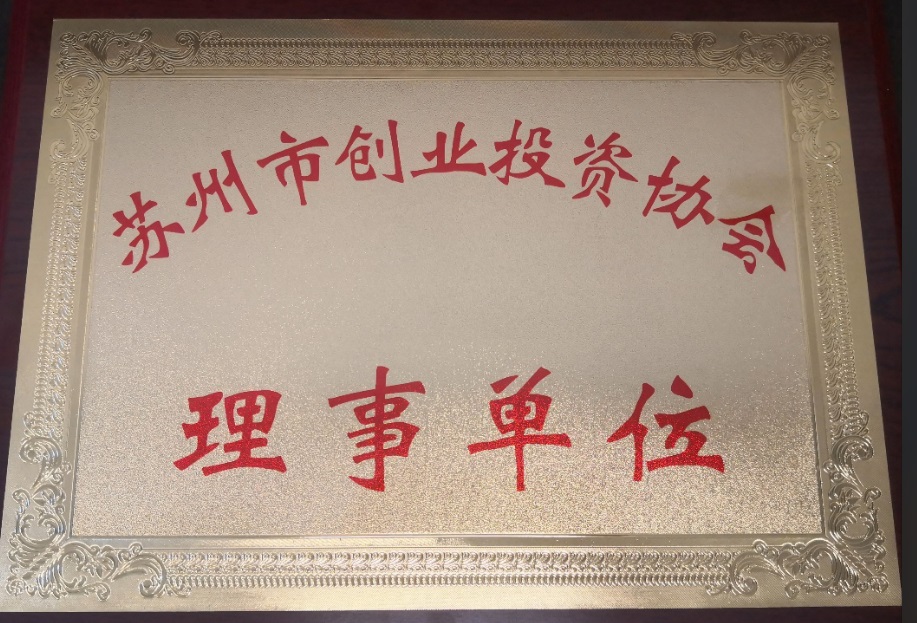 苏州市创业投资协会
理事单位